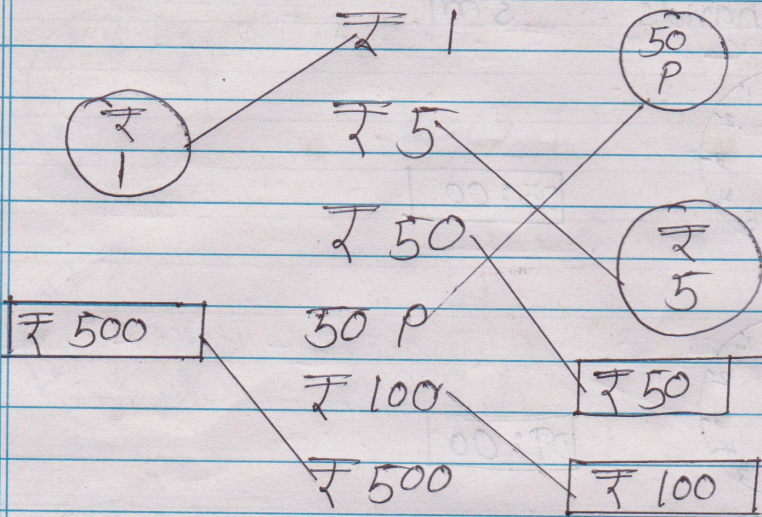 ₹ 1
50
P
₹
1
₹ 5
₹ 50
₹
5
₹ 500
50 P
₹ 100
₹ 50
₹ 500
₹ 100